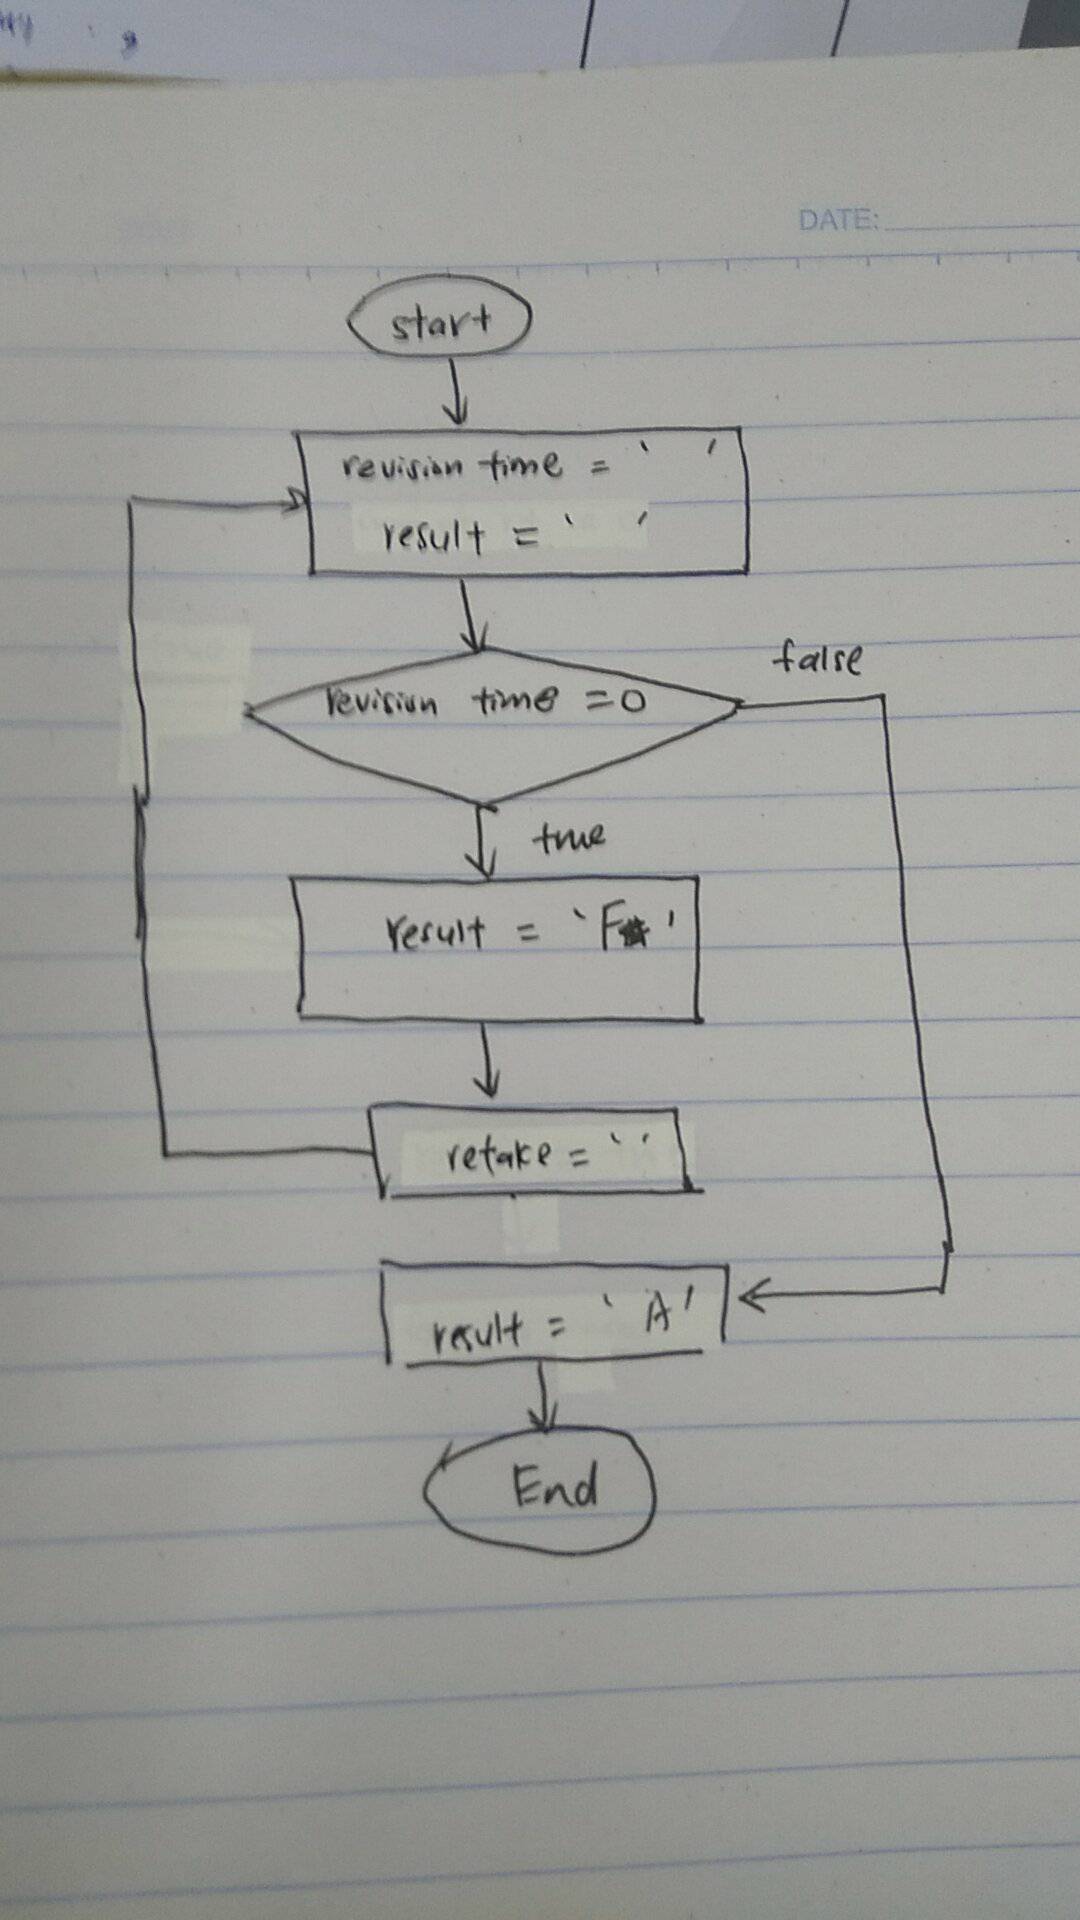 DATE:
start
revision time = ` '
result = ` '
false
revision time = 0
true
result = `F '
retake = ` '
result = ` A'
End